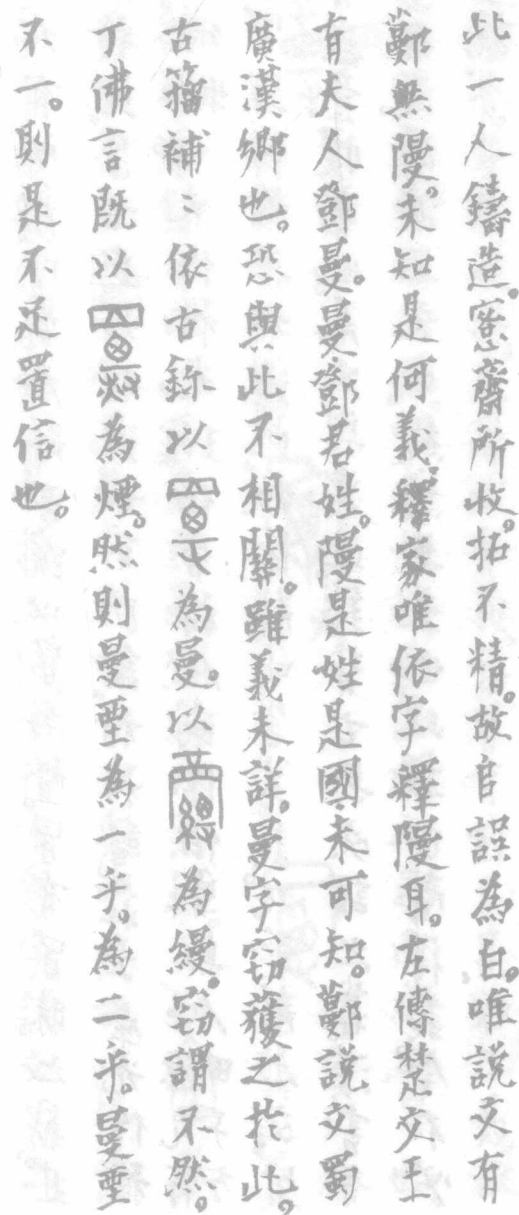 此一人鑄造。窓齋所收。拓不精。故𠂤誤為白。唯說文有
鄤無隁。未知是何義。釋家唯依字釋隁耳。左傳楚文王
有夫人鄧曼。曼鄧君姓。隁是姓是國未可知。鄤說文蜀
廣漢鄉也。恐與此不相關。雖義未詳。曼字窃獲之於此。
古籀補〻依古鉨以為曼。以為縵。窃謂不然。
丁佛言既以為煙。然則曼垔為一乎。為二乎。曼垔
不一。則是不足置信也。